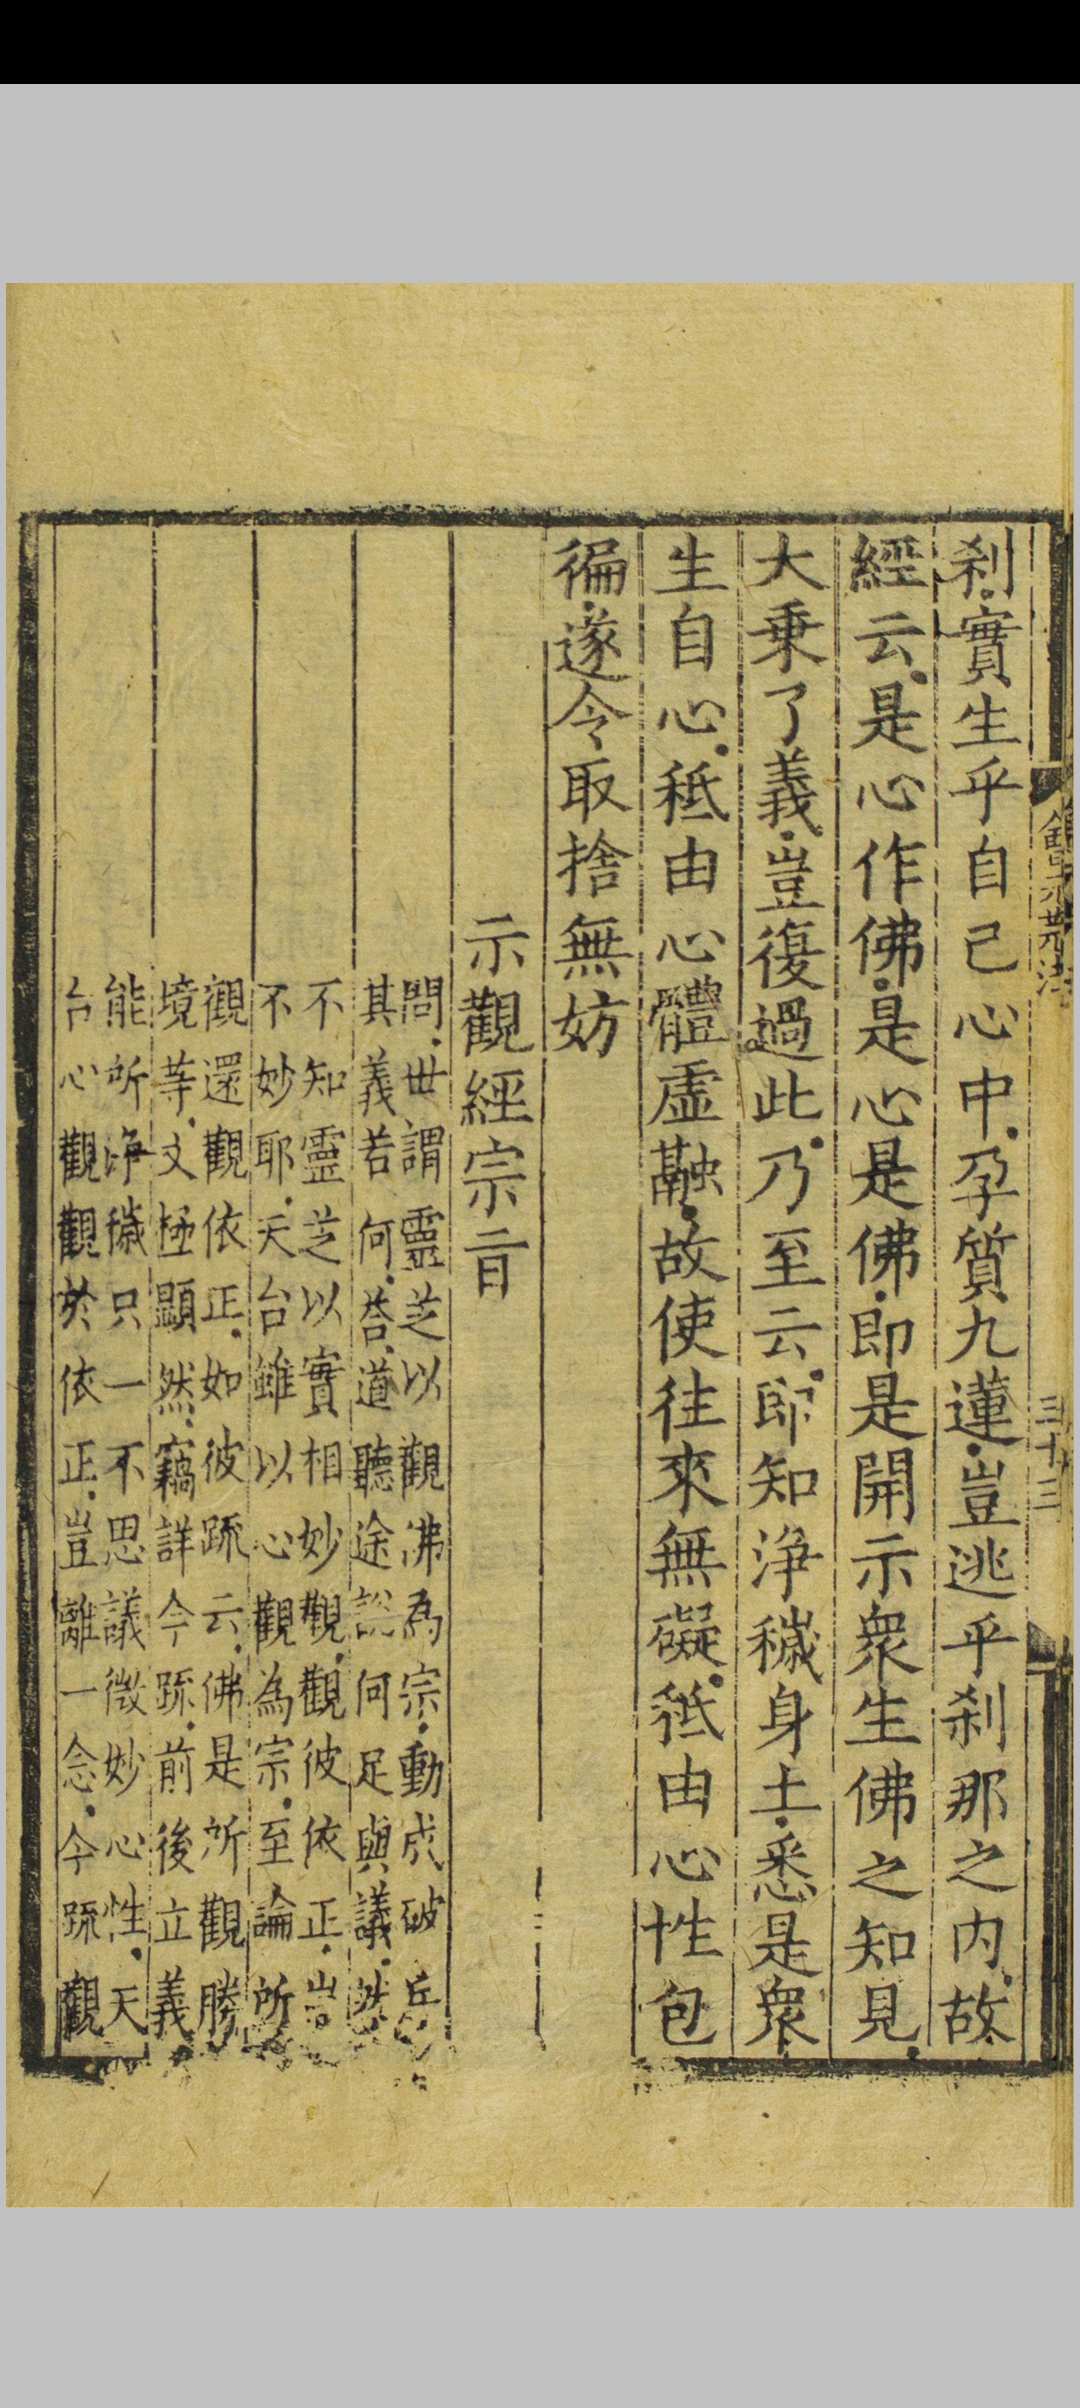 三十三
刹實生乎自己心中孕質九蓮豈逃乎刹那之内故
經云是心作佛是心是佛即是開示衆生佛之知見
大乗了義豈復過此乃至云即知浄穢身土悉是衆
生自心秪由心體虚融故使往來無礙秪由心性包
徧遂令取捨無妨
示觀經宗㫖
問世謂靈芝以觀佛為宗動成破丘
其義若何荅道聽途説何足與議
不知靈芝以實相妙觀觀彼依正豈
不妙耶天台雖以心觀為宗至論所
觀還觀依正如彼䟽云佛是所觀勝
境䓁文極顯然竊詳今䟽前後立義
能所浄穢只一不思議微妙心性天
台心觀觀於依正豈離一念今䟽觀